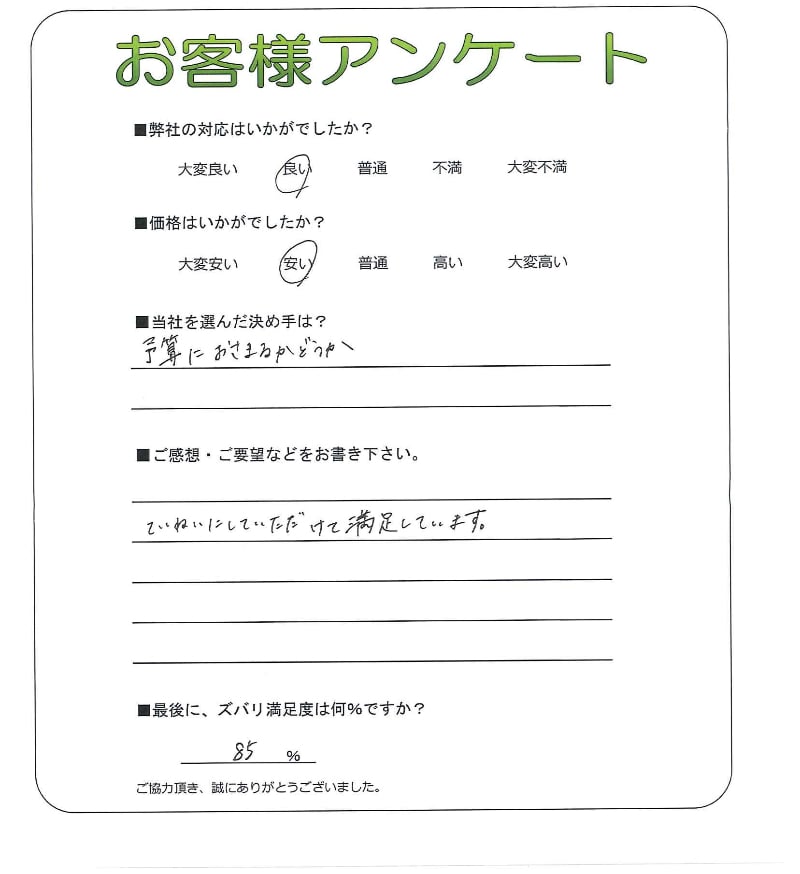 お客様アンケート
■弊社の対応はいかがでしたか？
大変良い 良い 普通 不満 大変不満
■価格はいかがでしたか？
大変安い 安い 普通 高い 大変高い
■当社を選んだ決め手は？
予算におさまるかどうか
■ご感想・ご要望などをお書き下さい。
ていねいにしていただけて満足しています。
■最後に、ズバリ満足度は何%ですか？
85 %
ご協力頂き、誠にありがとうございました。